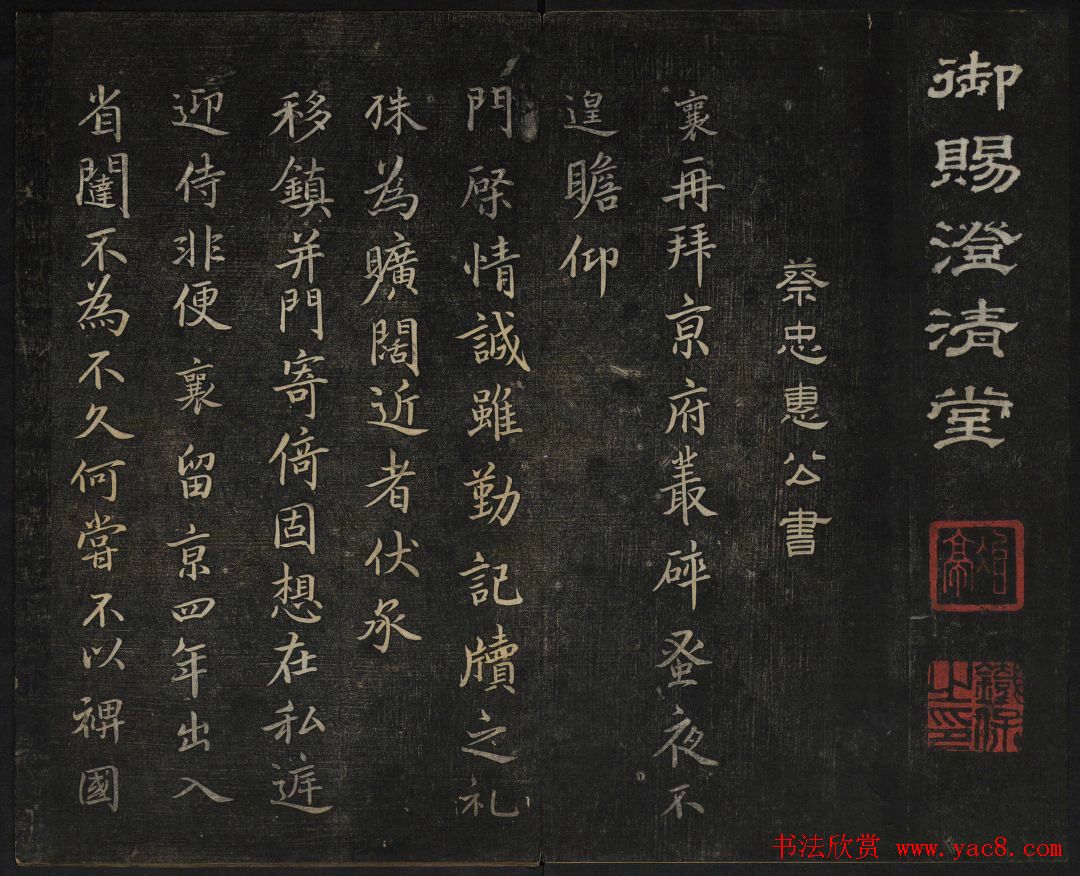 御賜澄清堂
冶亭
鐵保之印
蔡忠惠公書
襄再拜亰府叢碎蚤夜不
遑瞻仰
門棨情誠雖勤記牘之礼
殊為曠闊近者伏承
移鎮并門寄倚固想在私
迎侍非便襄留亰四年出入
省闥不為不久何嘗不以裨國
书法欣赏 www.yac8.com